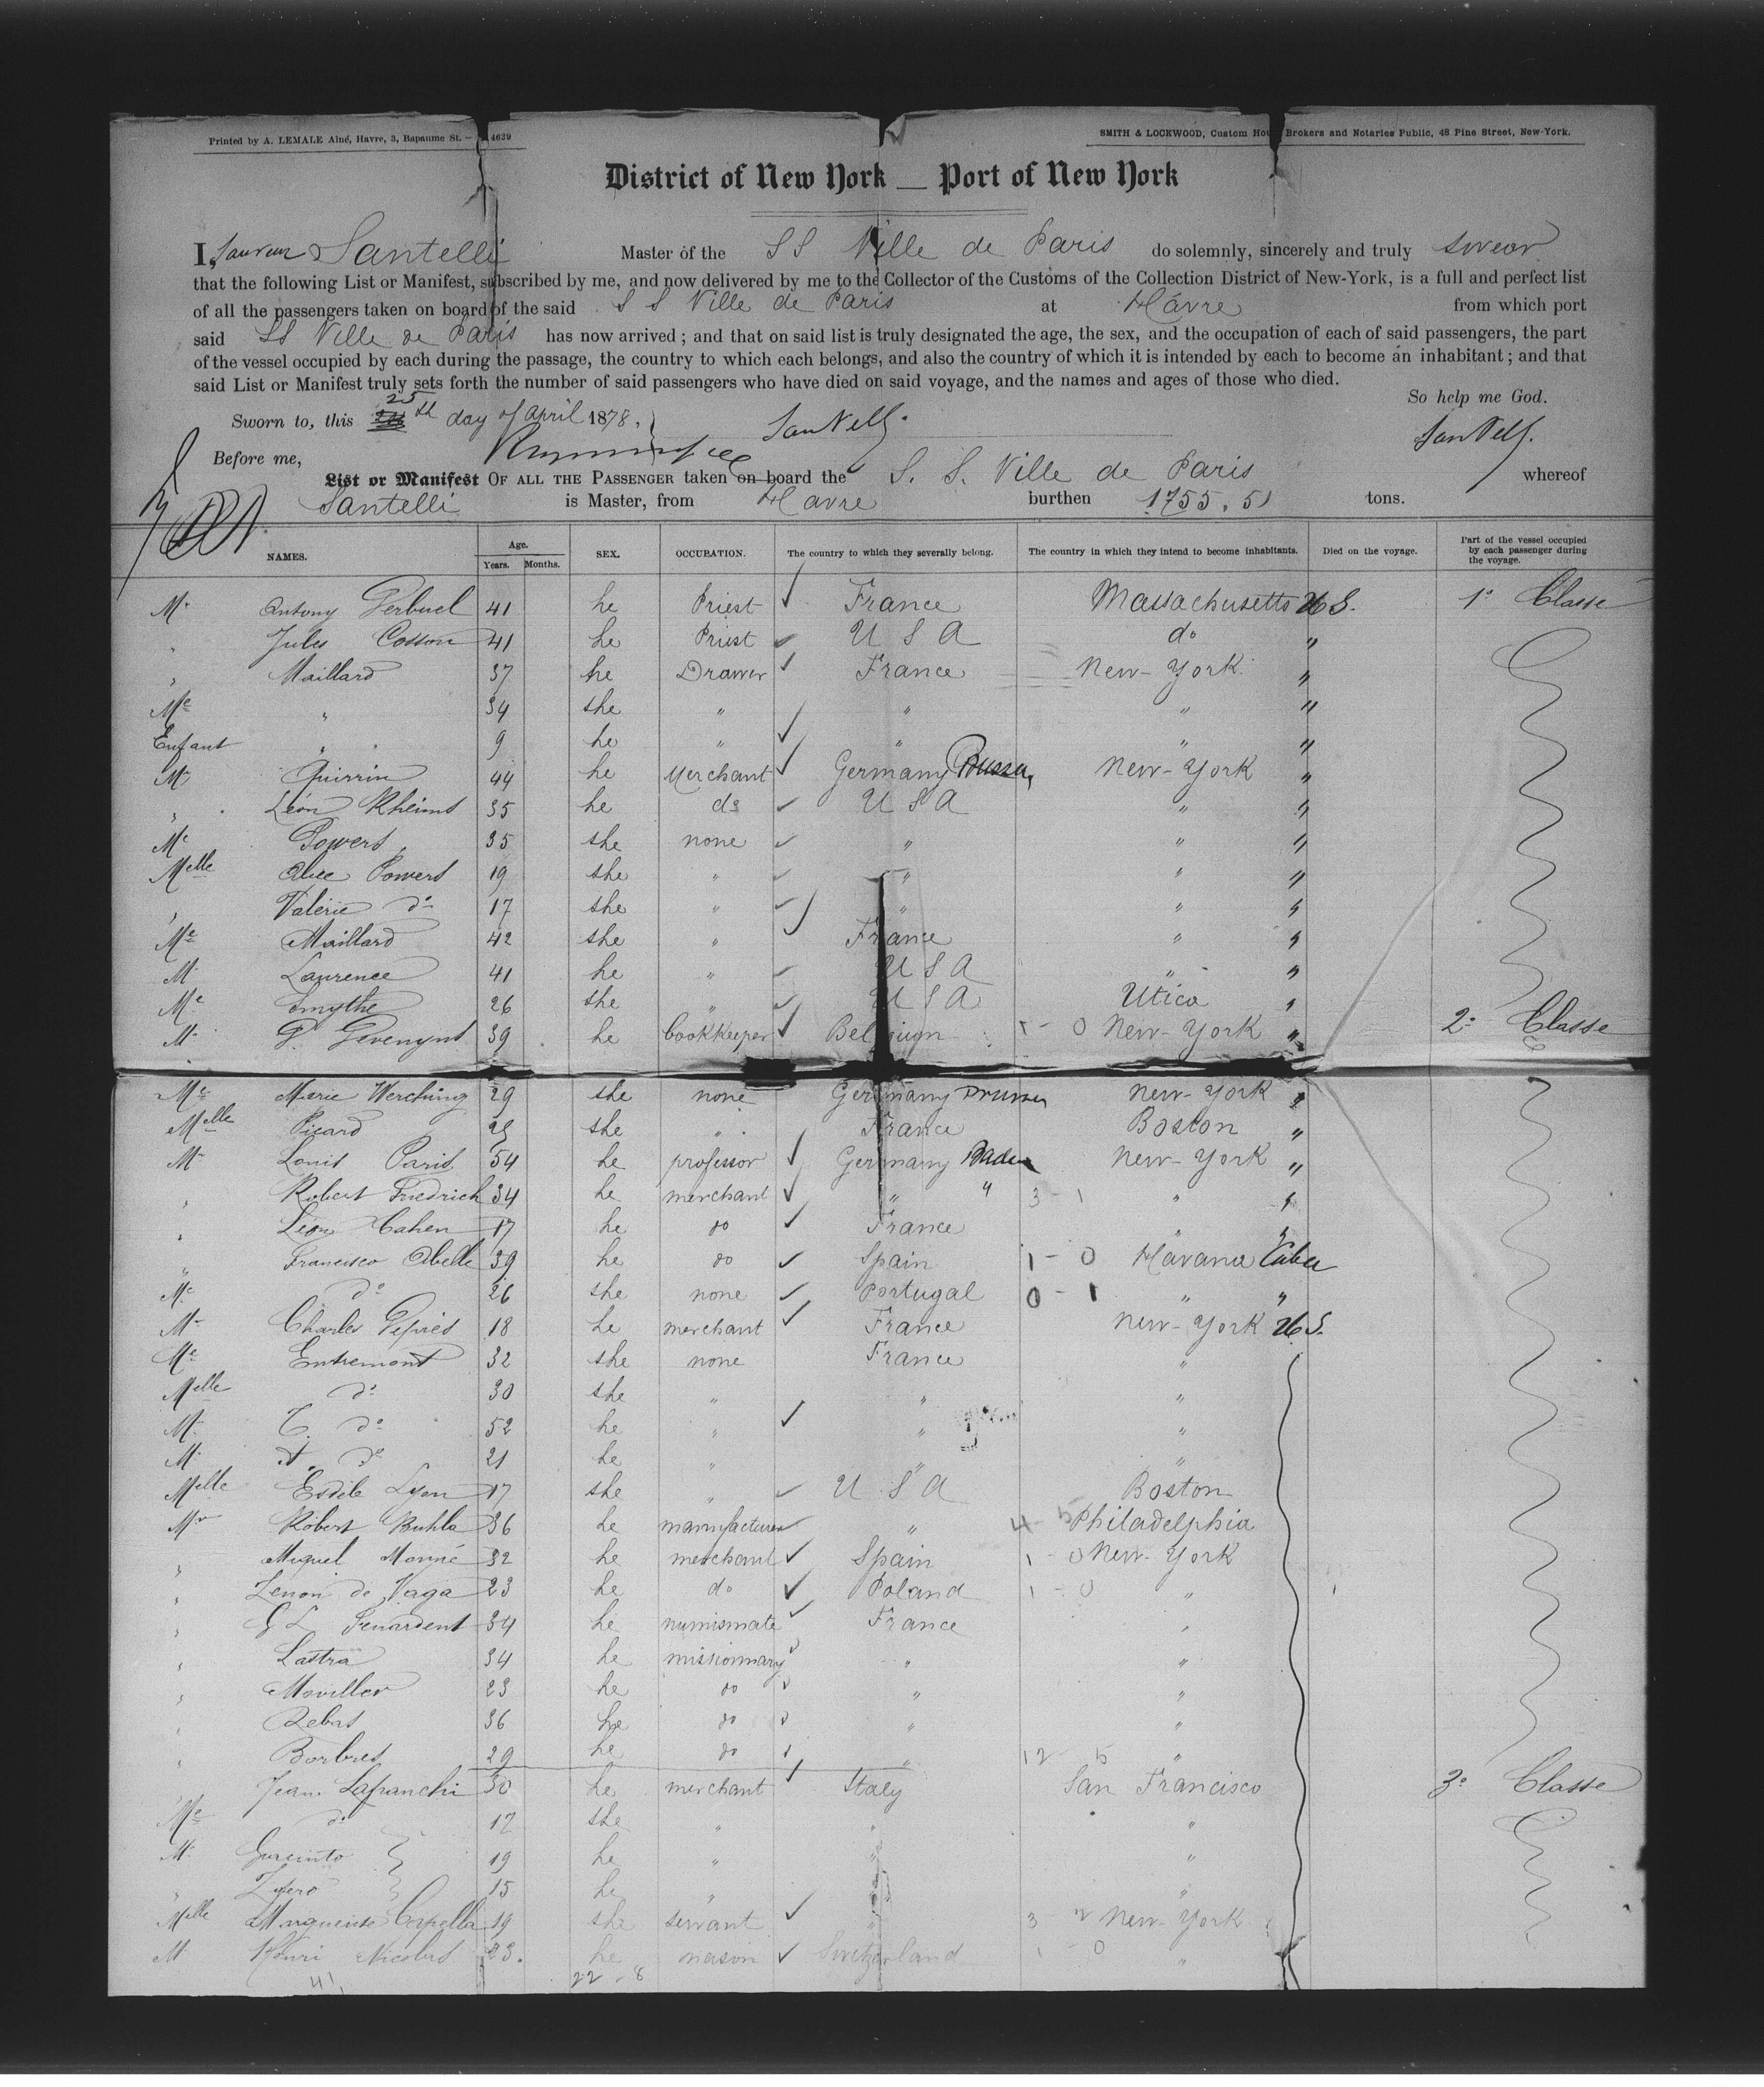 Printed by A. LEMALE Aîné, Havre, 3, Rapaume St. — 4629
SMITH & LOCKWOOD, Custom House Brokers and Notaries Public, 48 Pine Street, New-York.
District of New York — Port of New York
I, Santelli Master of the SS Ville de Paris do solemnly, sincerely and truly swear
that the following List or Manifest, subscribed by me, and now delivered by me to the Collector of the Customs of the Collection District of New-York, is a full and perfect list
of all the passengers taken on board of the said SS Ville de Paris at Hâvre from which port
said SS Ville de Paris has now arrived ; and that on said list is truly designated the age, the sex, and the occupation of each of said passengers, the part
of the vessel occupied by each during the passage, the country to which each belongs, and also the country of which it is intended by each to become an inhabitant ; and that
said List or Manifest truly sets forth the number of said passengers who have died on said voyage, and the names and ages of those who died.
So help me God.
Sworn to, this 25th day of April 1878,
Before me,
List or Manifest OF ALL THE PASSENGER taken on board the S. S. Ville de Paris whereof
Santelli is Master, from Havre burthen 1755.51 tons.
NAMES. Age. Years. Months. SEX. OCCUPATION. The country to which they severally belong. The country in which they intend to become inhabitants. Died on the voyage. Part of the vessel occupied by each passenger during the voyage.
Mr Antony 41 he Priest France Massachusetts U.S. 1e Classe
" Jules Cosson 41 he Priest U S A do "
" Maillard 37 he Drawer France New-York "
Me " 34 she " " " "
Enfant " 9 he " " " "
Mr Quirrin 44 he Merchant Germany Prussia New-York "
" Léon Rheims 35 he do U S A " "
Me Powers 35 she none " " "
Melle Alice Powers 19 she " " " "
" Valérie do 17 she " " " "
Me Maillard 42 she " France " "
M. Laurence 41 he " U S A " "
Me Smythe 26 she " U S A Utica "
M. P. Gevenynt 39 he bookkeeper Belgium 1-0 New-York " 2e Classe
Me Marie Werching 29 she none Germany Prussia New-York "
Melle Picard 25 she " France Boston "
M. Louis Paris 54 he professor Germany Baden New-York "
" Robert Friedrich 34 he merchant " " 3-1 " "
" Léon Cahen 17 he do France " "
" Francisco Abelle 39 he do Spain 1-0 Havana Cuba
Me do 26 she none Portugal 0-1 " "
M. Charles 18 he merchant France New-York U.S.
Me Entremont 32 she none France "
Melle do 30 she " " "
M. C. do 52 he " " "
M. A. do 21 he " " "
Melle Lyon 17 she " U S A Boston
Mr Robert Buhla 36 he manufacturer " 4-5 Philadelphia
" Miguel Monné 32 he merchant Spain 1-0 New-York
" Zenon de Vaga 23 he do Poland 1-0 "
" G L Feuardent 34 he numismate France "
" Lastra 34 he missionnary " "
" 23 he do " "
" Rebas 36 he do " "
" Borbres 29 he do " 12-5 "
" Jean Lafranchi 30 he merchant Italy San Francisco 3e Classe
Me do 17 she " " "
M. 19 he " " "
" 15 he " "
Melle Marguerite Capella 19 she servant " 3-2 New-York
M. Henri Nicolas 23. he mason Switzerland 1-0 "
41, 22-8